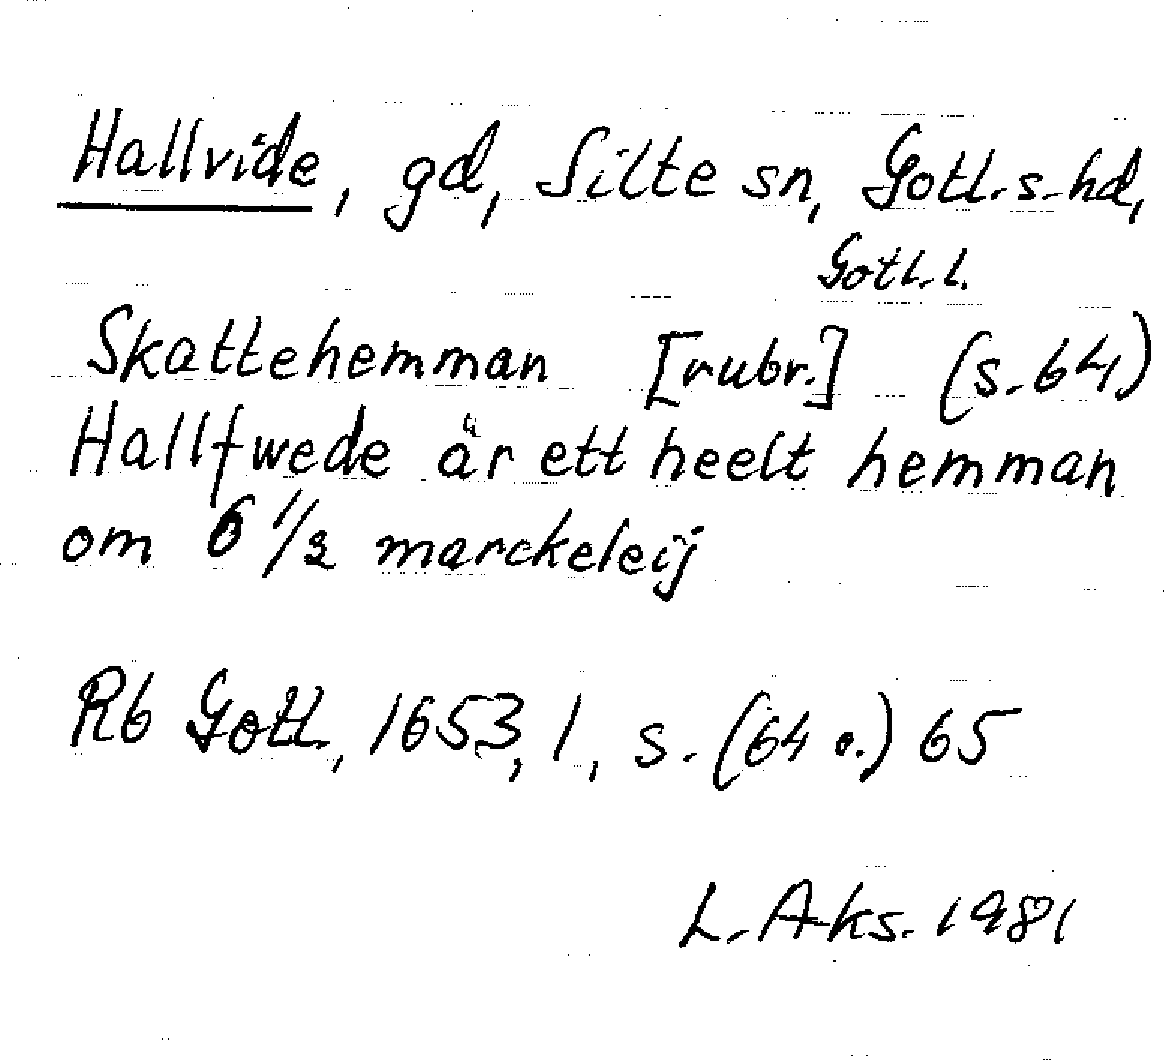 Hallvide, gd, Silte sn, Gotl. s. hd,
Gotl. l.
Skattehemman [rubr.] (s. 64)
Hallfwede är ett heelt hemman
om 6 1/2 marckeleij
Rb Gotl, 1653, 1, s. (64 o.) 65
L. Aks. 1981